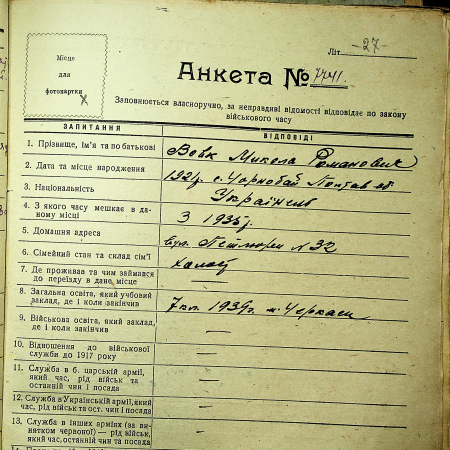 Літ. -27-
Місце
для
фотокартки
Анкета № 7741.
Заповнюється власноручно, за неправдиві відомості відповідає по закону
військового часу
ЗАПИТАННЯ ВІДПОВІДІ
1. Прізвище, ім'я та по батькові Вовк Микола Романович
2. Дата та місце народження 1921р. с. Чорнобай Полтав об
3. Національність Українець
4. З якого часу мешкає в да-
ному місці З 1935р.
5. Домашня адреса Вул. Петлюри N 32
6. Сімейний стан та склад сім'ї холост
7. Де проживав та чим займався
до переїзду в дане місце —
8. Загальна освіта, який учбовий
заклад, де і коли закінчив 7кл. 1939р. м. Черкаси
9. Військова освіта, який заклад,
де і коли закінчив —
10. Відношення до військової
служби до 1917 року —
11. Служба в б. царській армії,
який час, рід військ та
останній чин і посада —
12. Служба в Українській армії, який
час, рід військ та ост. чин і посада —
13. Служба в інших арміях (за ви-
нятком червоної) — рід військ,
який час, останній чин та посада —